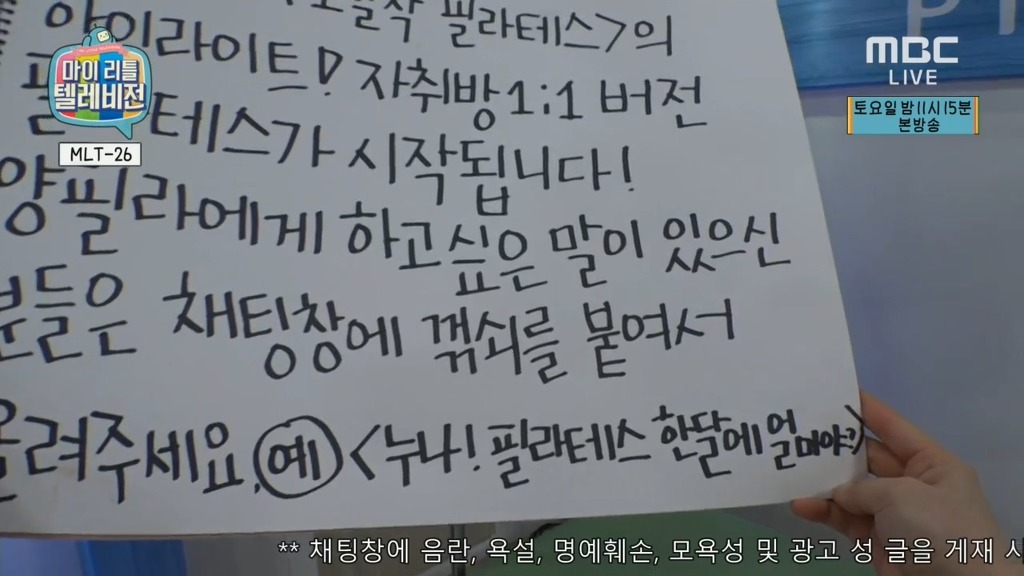 필라테스>의
하이라이트! 자취방 1:1 버전
필라테스가 시작됩니다!
양필라에게 하고싶은 말이 있으신
분들은 채팅창에 꺾쇠를 붙여서
올려주세요. 예 <누나! 필라테스 한달에 얼마야?>
마이 리틀
텔레비전
MLT-26
MBC
LIVE
토요일 밤 11시 15분
본방송
** 채팅창에 음란, 욕설, 명예훼손, 모욕성 및 광고 성 글을 게재 시